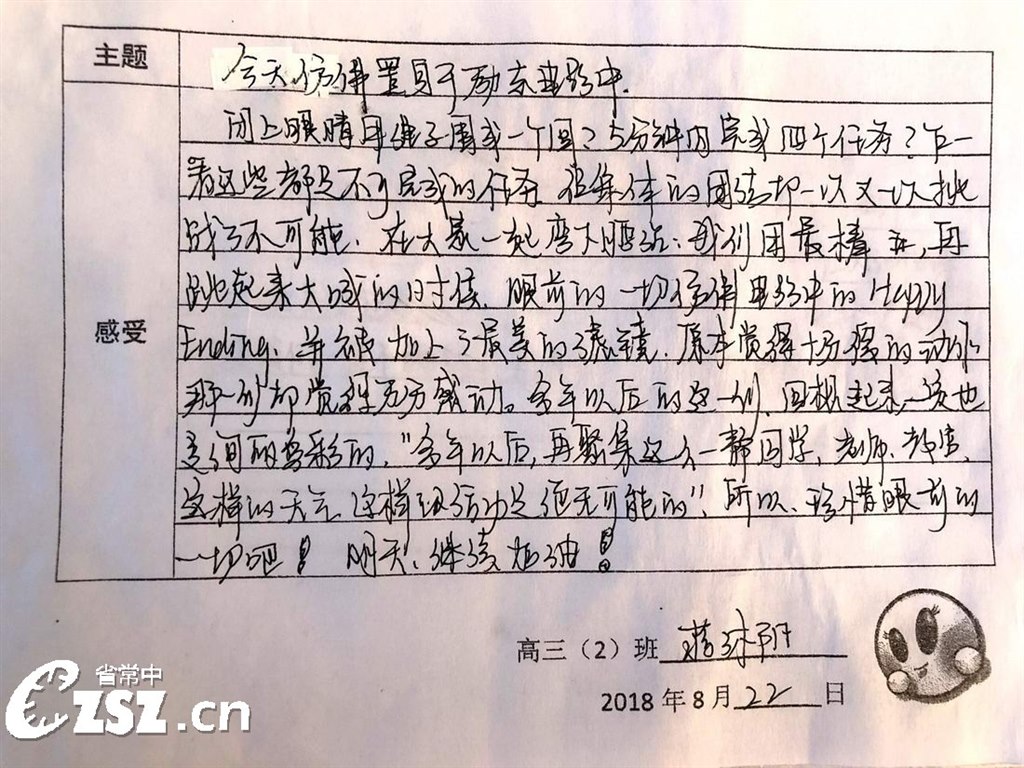 主题
今天仿佛置身于励志电影中.
闭上眼睛用绳子围成一个圆？5分钟内完成四个任务？乍一
看这些都是不可完成的任务 但集体的团结却一次又一次挑
战了不可能. 在大家一起弯下腰说:我们团最棒 ,再
跳起来大喊的时候, 眼前的一切仿佛电影中的Happy
Ending, 并被加上了最美的滤镜. 原本觉得十分 的动作
那一刻却觉得无 感动。多年以后的这一刻, 回想起来,一定也
是 的色彩的, "多年以后,再聚集这么一群同学, 老师, 教官,
这样的天气 这样的活动是绝无可能的", 所以, 珍惜眼前的
一切吧！ 明天, 继续加油！
感受
高三（2）班
2018年8月22日
省常中
CZSZ.cn